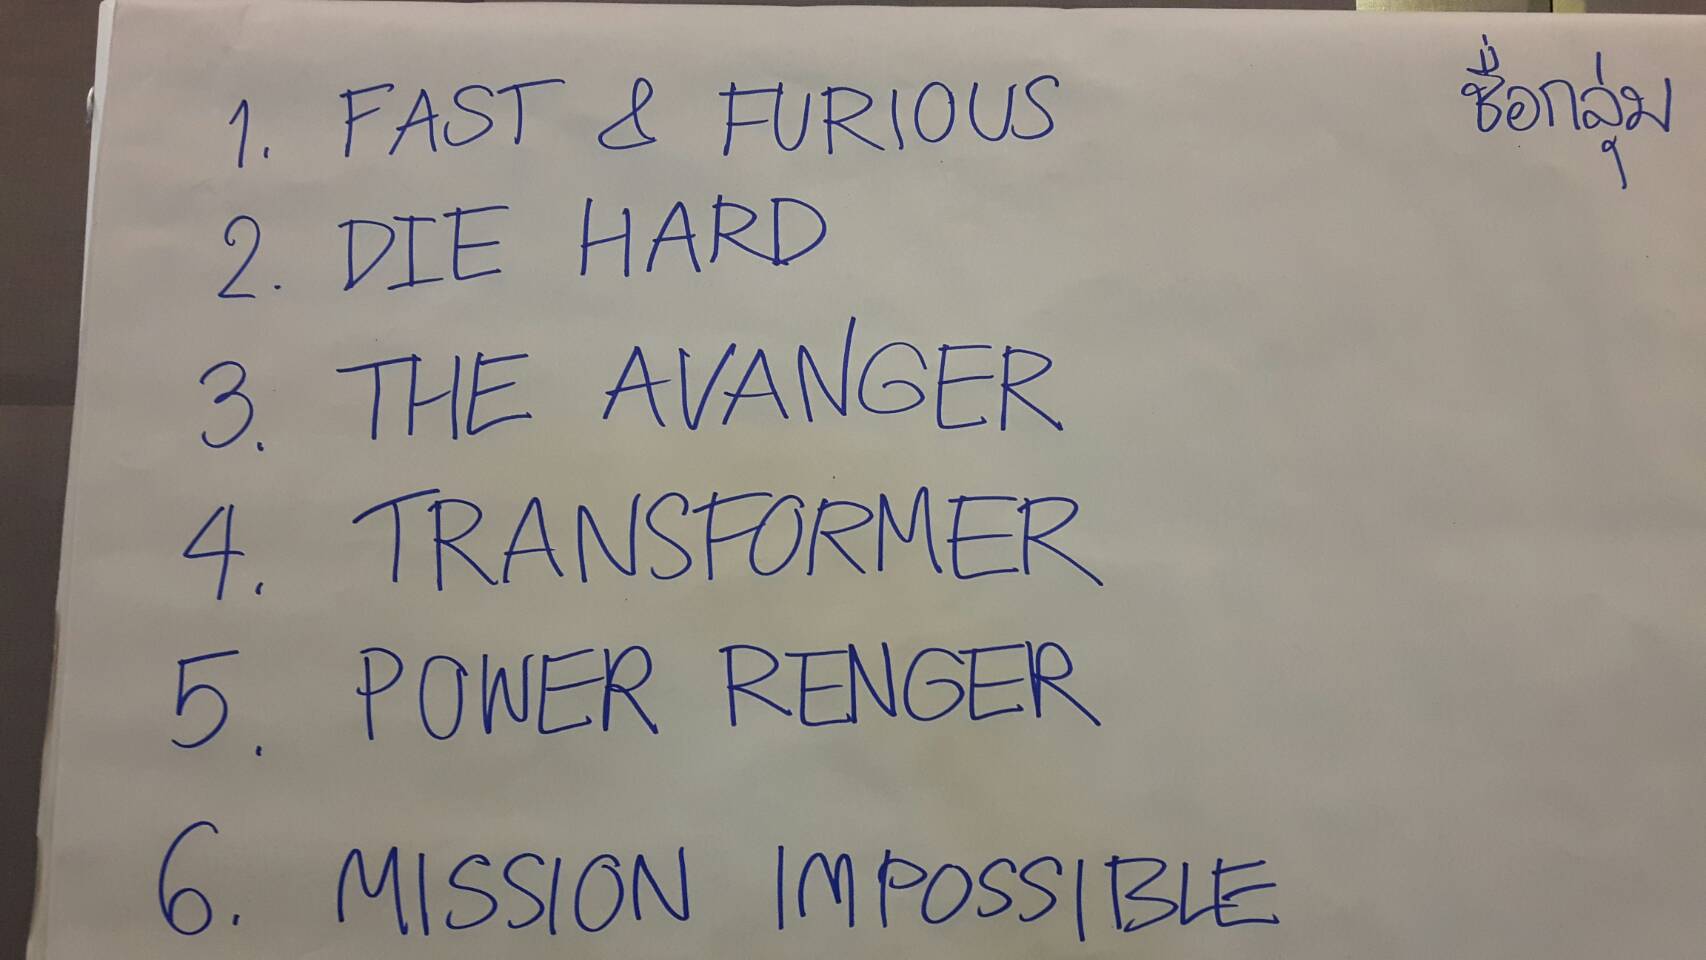 ชื่อกลุ่ม
1. FAST & FURIOUS
2. DIE HARD
3. THE AVANGER
4. TRANSFORMER
5. POWER RENGER
6. MISSION IMPOSSIBLE